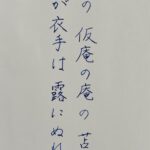 の 仮庵の庵の 苫
が衣手は 露にぬれ